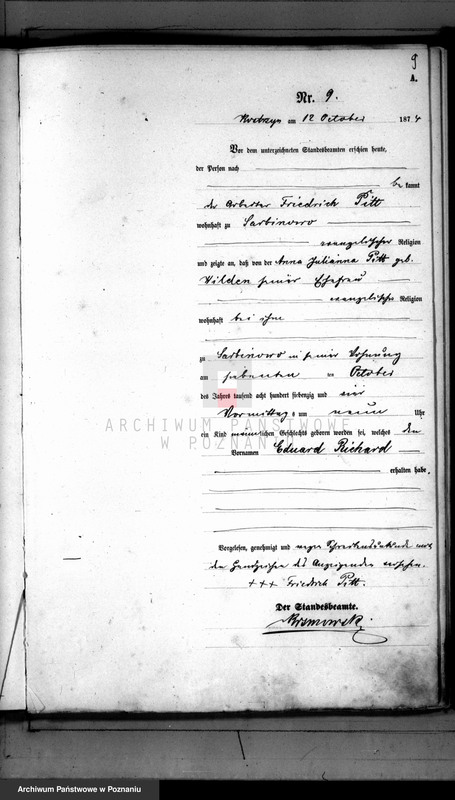 9
A.
Nr. 9.
am 12 October 1874
Vor dem unterzeichneten Standesbeamten erschien heute,
der Person nach
be kannt
der Arbeiter Friedrich Pitt
wohnhaft zu Sarbinowo
evangelischer Religion
und zeigte an, daß von der Anna Julianna Pitt geb.
Wilden seiner Ehefrau
evangelischer Religion
wohnhaft bei ihm
zu Sarbinowo in seiner Wohnung
am siebenten ten October
des Jahres tausend acht hundert siebenzig und vier
Vormittag s um neun Uhr
ein Kind männlichen Geschlechts geboren worden sei, welches den
Vornamen Eduard Richard
erhalten habe.
ARCHIWUM PAŃSTWOWE
W POZNANIU
Vorgelesen, genehmigt und wegen Schreibensunkunde mit
dem Handzeichen des Anzeigenden versehen.
+++ Friedrich Pitt.
Der Standesbeamte.
Archiwum Państwowe w Poznaniu